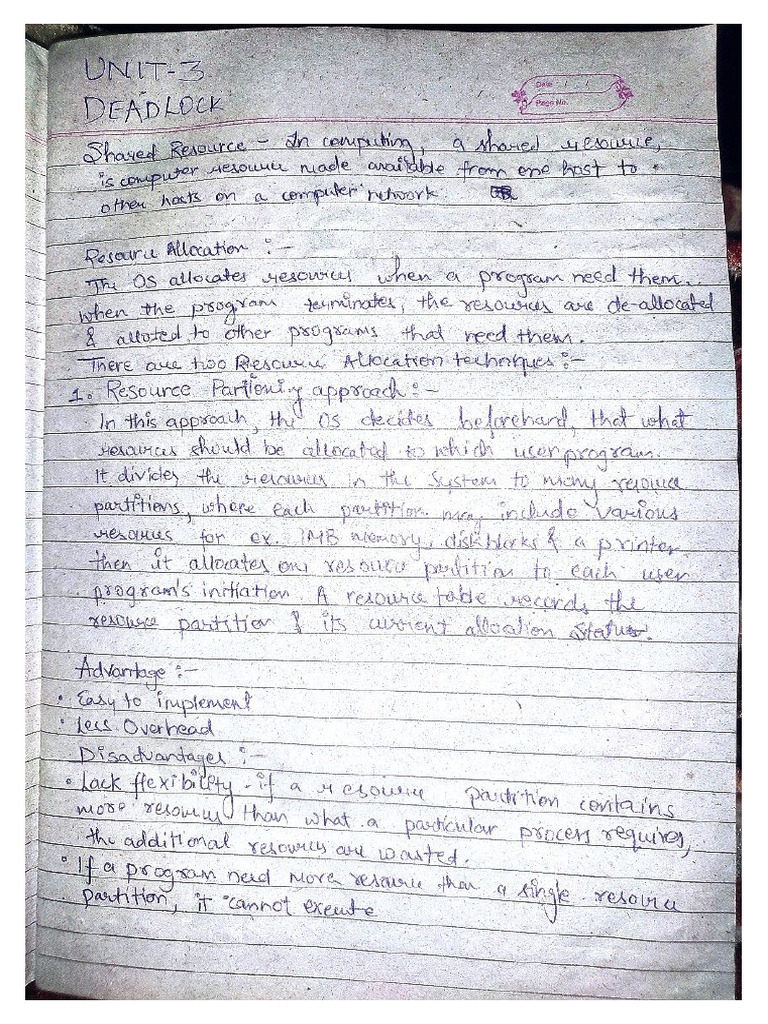 UNIT-3
DEADLOCK
Date / /
Page No.
Shared Resource - In computing, a shared resource,
is computer resource made available from one host to
other hosts on a computer network
Resource Allocation :-
The OS allocates resources when a program need them.
when the program terminates, the resources are de-allocated
& alloted to other programs that need them.
There are two Resource Allocation techniques :-
1. Resource Partioning approach :-
In this approach, the OS decides beforehand, that what
resources should be allocated to which user program.
It divides the resources in the system to many resource
partitions, where each partition may include various
resources for ex. 1MB memory, disk blocks & a printer.
then it allocates one resource partition to each user
program's initiation. A resource table records the
resource partition & its current allocation status.
Advantage :-
• Easy to implement
• Less Overhead
Disadvantages :-
• Lack flexibility - if a resource partition contains
more resources than what a particular process requires,
the additional resources are wasted.
• If a program need more resource than a single resource
partition, it cannot execute